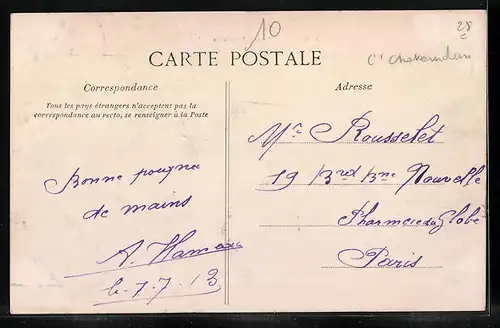 10
28
CARTE POSTALE
Correspondance
Tous les pays étrangers n'acceptent pas la
correspondance au recto, se renseigner à la Poste
Bonne poigne
de mains
A.
le 7.7.13
Adresse
Mr Rousselet
19 Bred Bne Nouvelle
Pharmcie du Globe
Paris